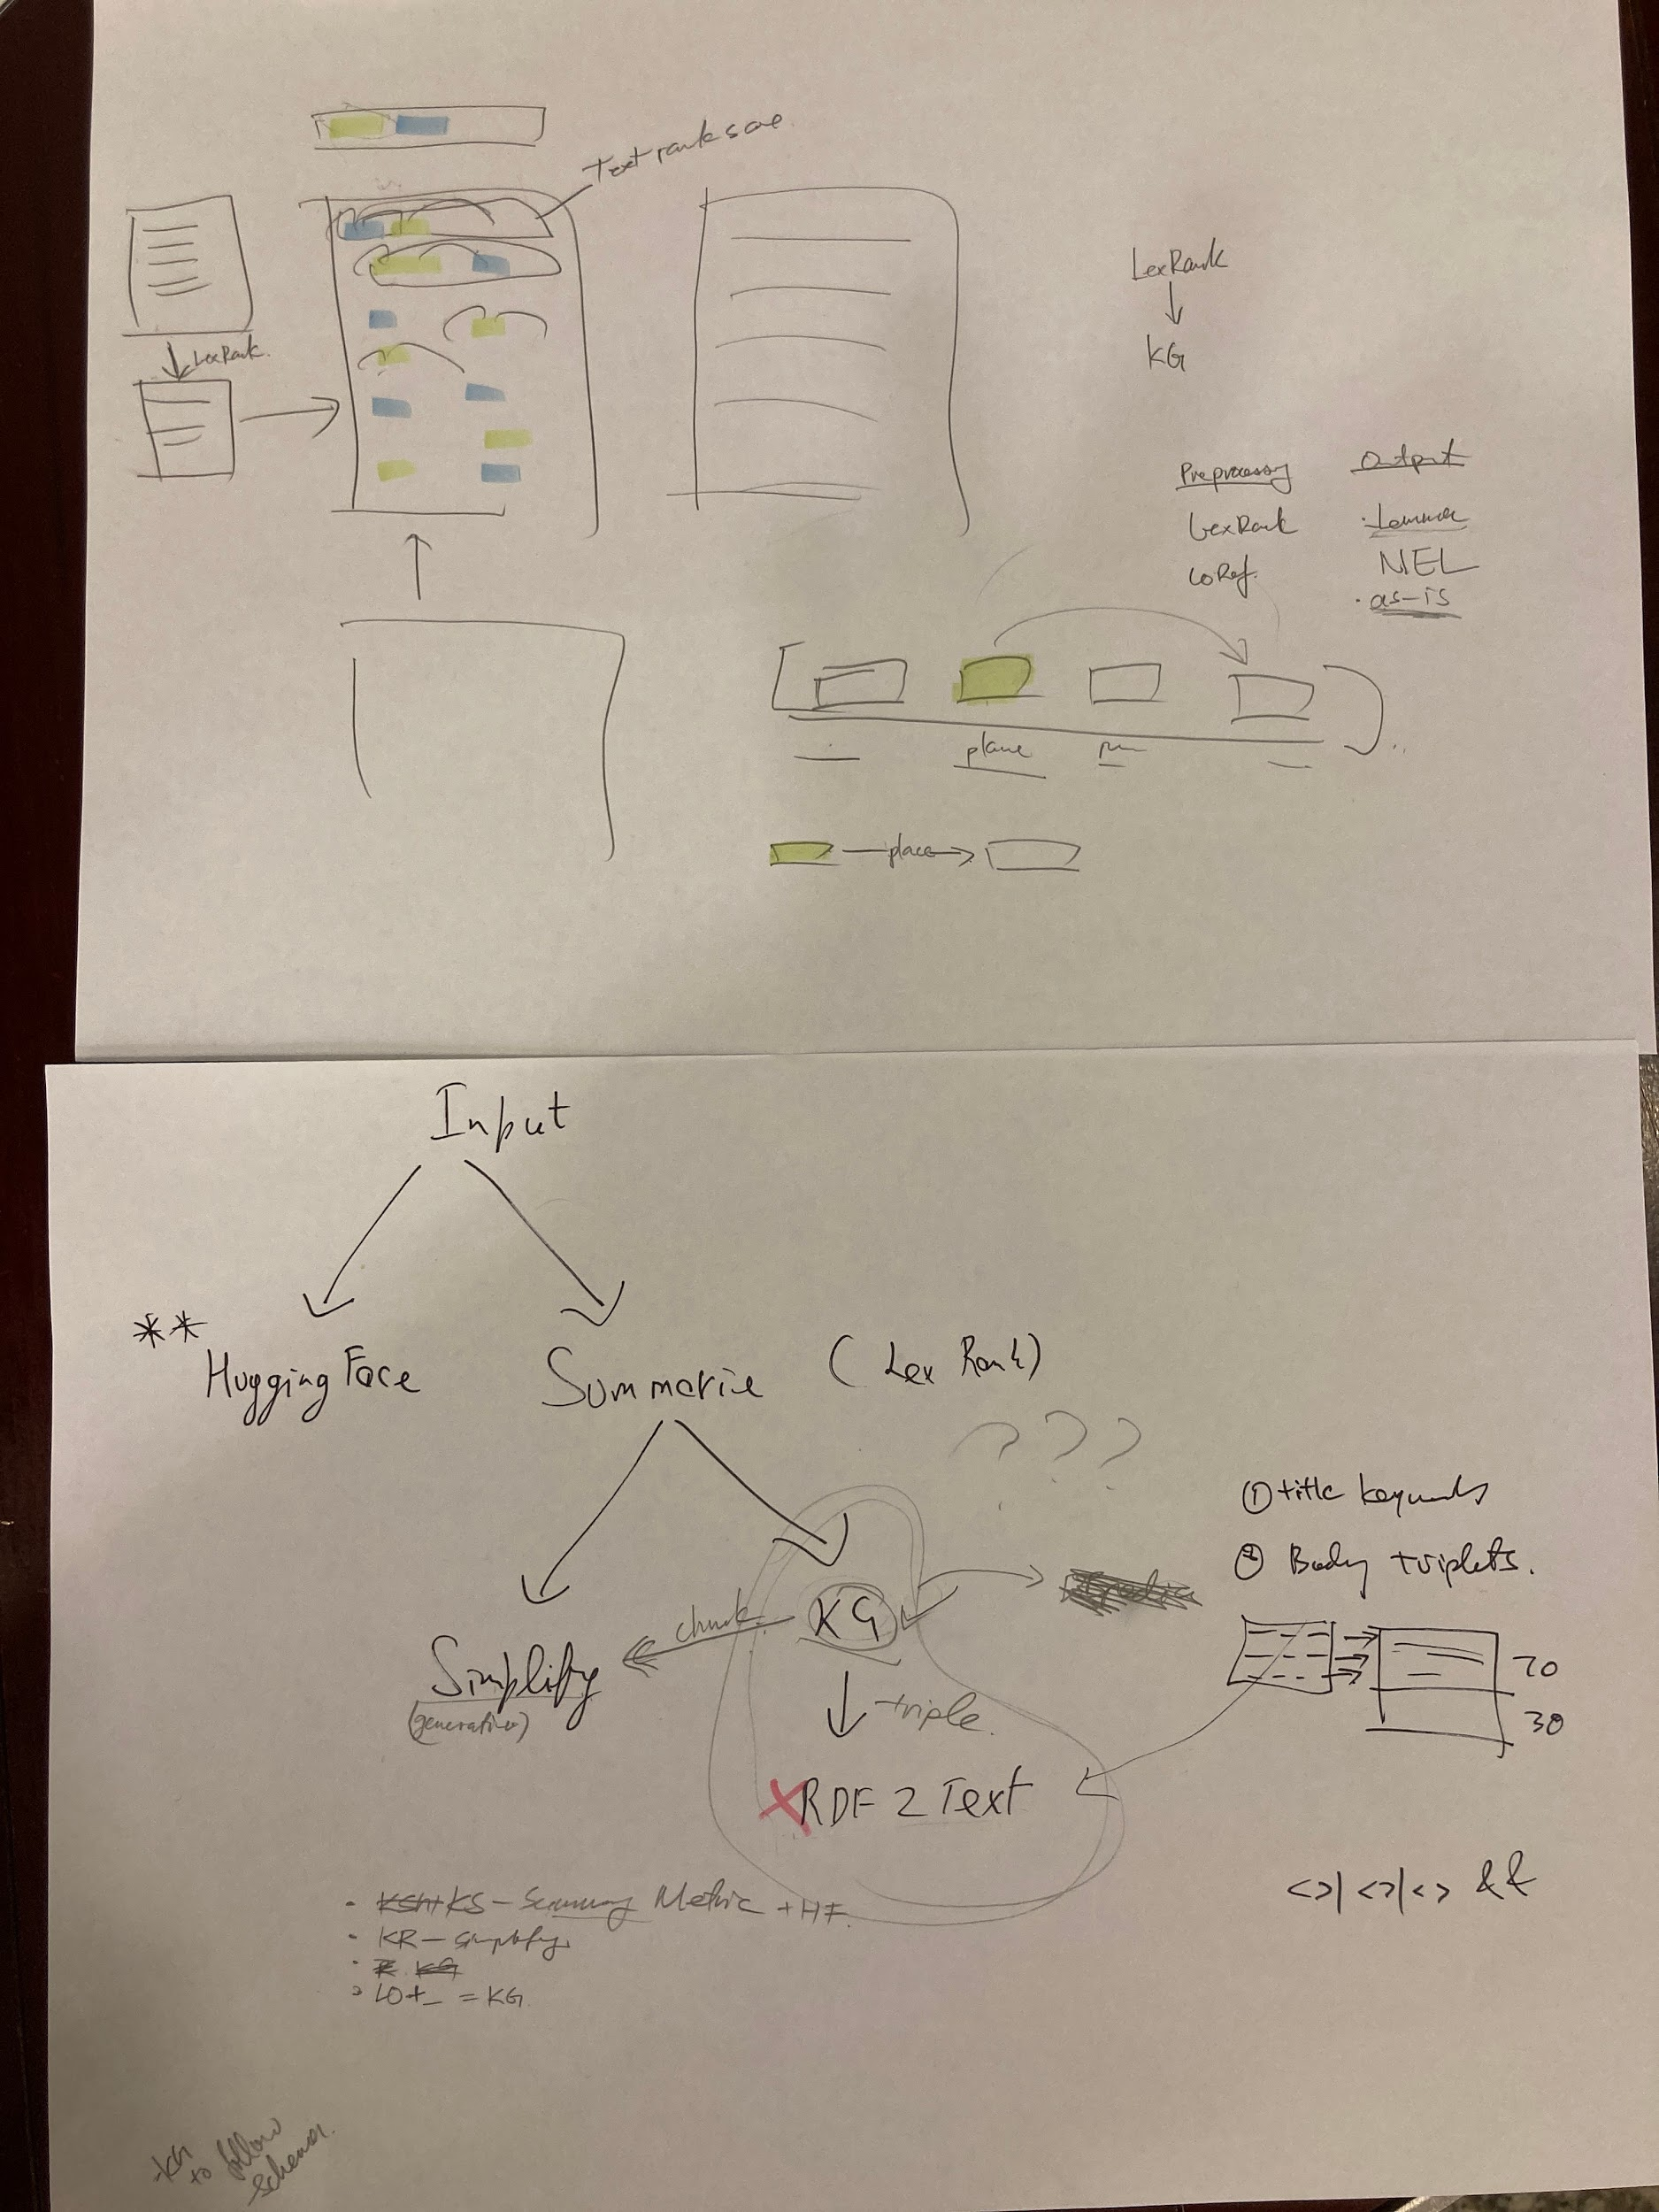 Text rank score
LexRank.
LexRank
KG
Preprocessing
Output
LexRank
·Lemma
CoRef.
NEL
· as-is
plane
place
Input
**
Hugging Face
Summarize (Lex Rank)
???
① title keywords
② Body triplets.
KG
chunk
Simplify
(generative)
triple.
70
30
X RDF 2 Text
<>|<>|<> &&
· KS - Summary Metric + HF.
· KR - simplify
KG
· LO+_ = KG
-KG
to follow
schema.